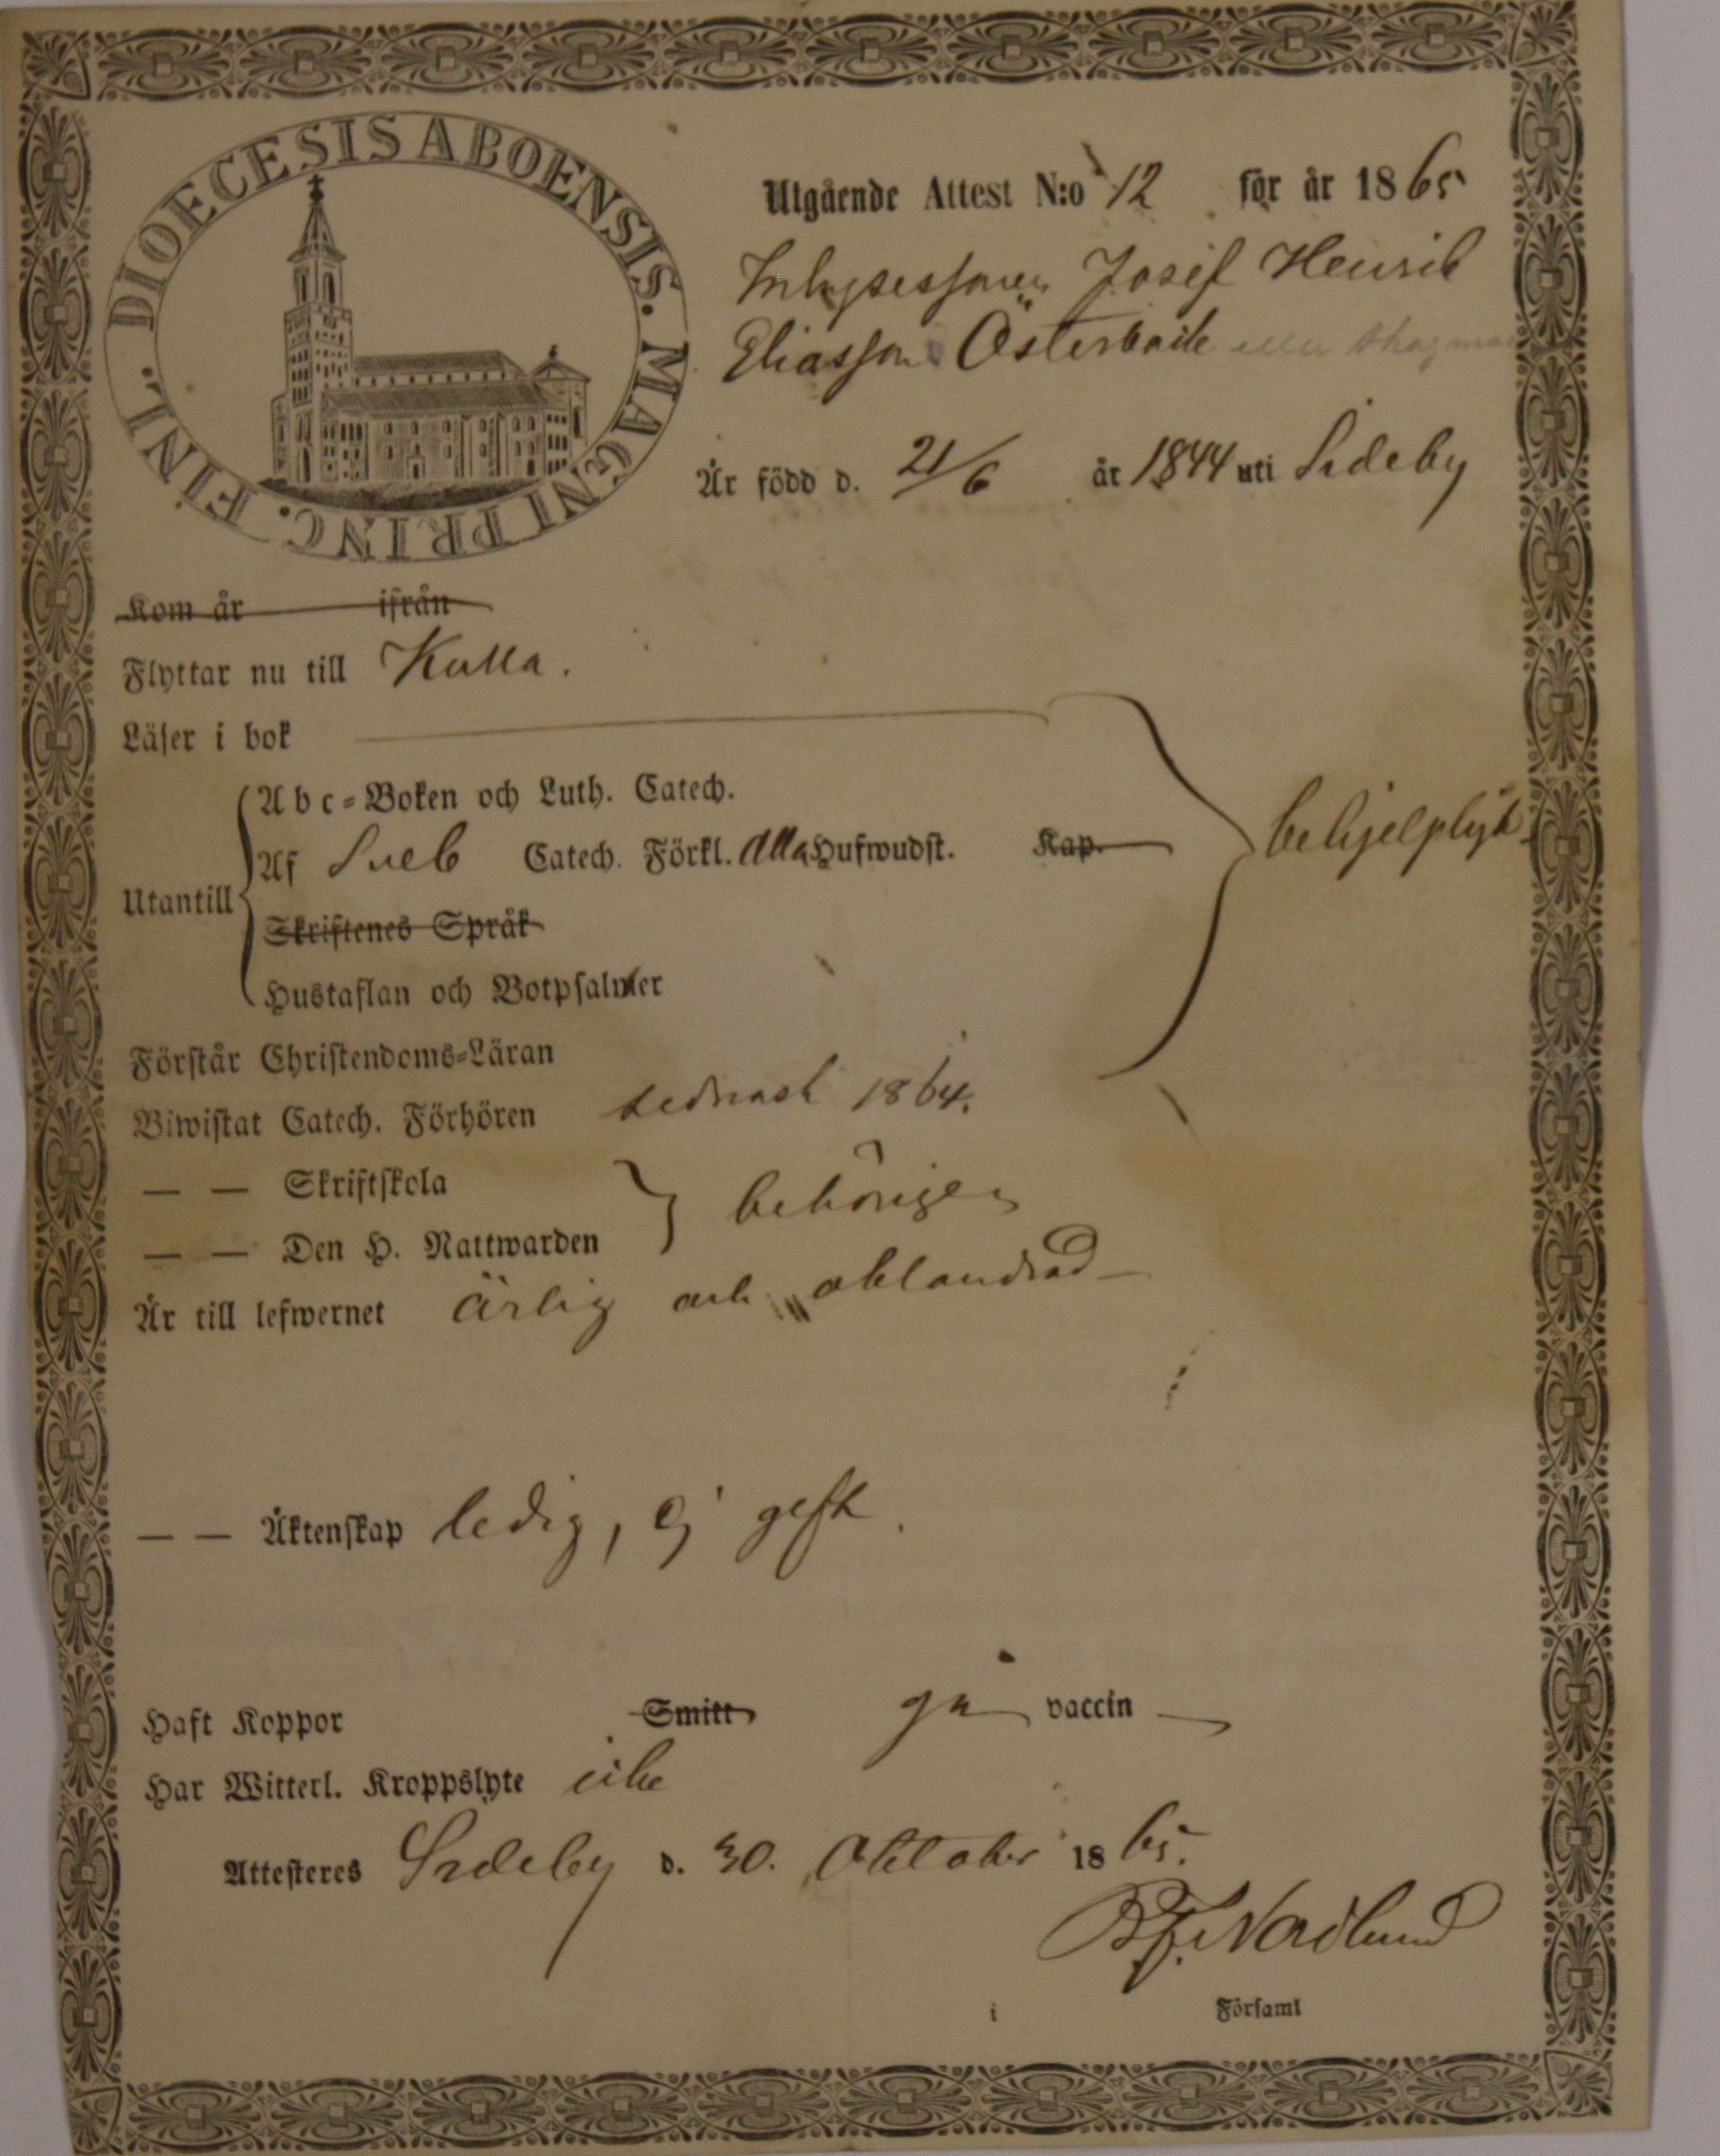 DIOECESIS ABOENSIS. MAGNI PRINC. FINL.
Utgående Attest N:o 12 för år 1865
Inhysessonen Josef Henrik
Eliasson Österback eller Skogman
Är född d. 21/6 år 1844 uti Sideby
Kom år ifrån
Flyttar nu till Kulla.
Läser i bok
Abc-Boken och Luth. Catech.
Af Sveb Catech. Förkl. alla Hufwudst. Kap.
behjelpligt
Utantill
Skriftenes Språk
Hustaflan och Botpsalmer
Förstår Christendoms-Läran
Biwistat Catech. Förhören sednast 1864.
— — Skriftskola
behörigen
— — Den H. Nattwarden
Är till lefwernet ärlig och oklandrad
— — Äktenskap ledig, ej gift.
Haft Koppor Smitt gn vaccin
Har Witterl. Kroppslyte icke
Attesteres Sideby d. 30. Oktober 1865.
B.F. Nordlund
i Församl